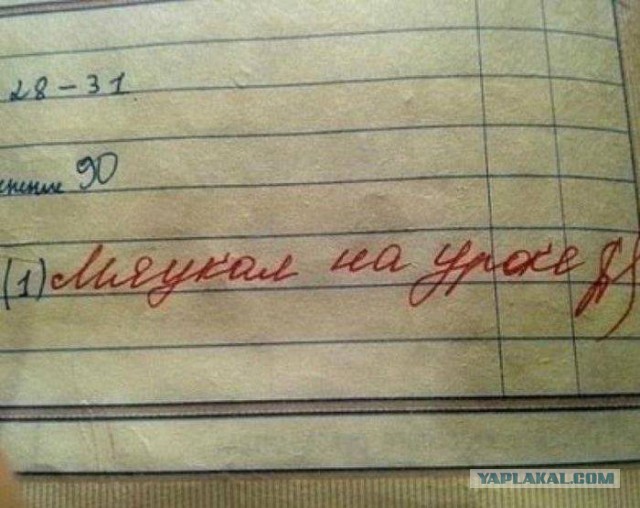 28-31
90
(1) Мяукал на уроке
YAPLAKAL.COM